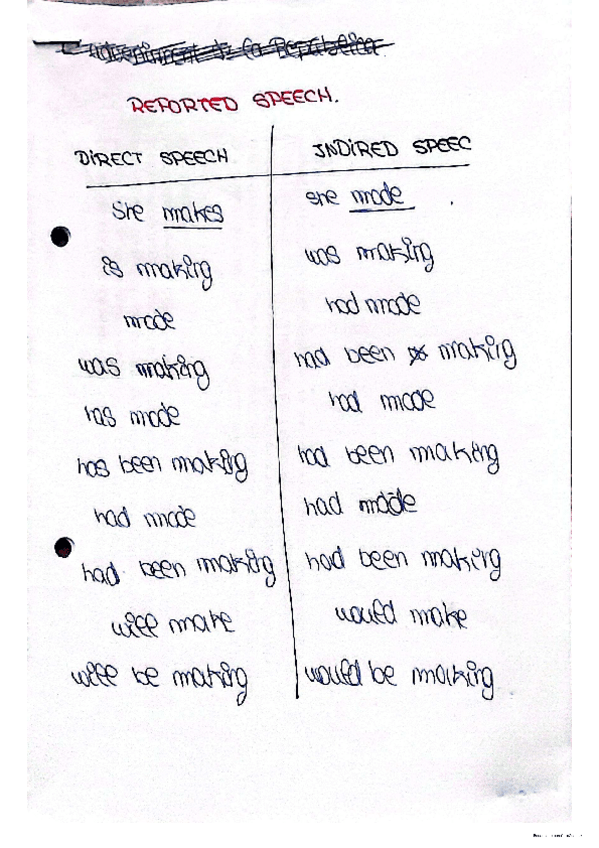 REPORTED SPEECH.
DIRECT SPEECH INDIRED SPEEC
She makes she made
is making was making
made had made
was making had been making
has made had made
has been making had been making
had made had made
had been making had been making
will make would make
will be making would be making